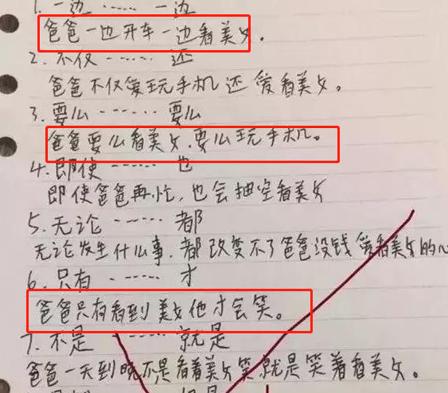 1. 一边 …… 一边
爸爸一边开车一边看美女。
2. 不仅 …… 还
爸爸不仅爱玩手机还爱看美女。
3. 要么 …… 要么
爸爸要么看美女,要么玩手机。
4. 即使 …… 也
即使爸爸再忙,也会抽空看美女
5. 无论 …… 都
无论发生什么事,都改变不了爸爸没钱爱看美女的心
6. 只有 …… 才
爸爸只有看到美女他才会笑。
7. 不是 …… 就是
爸爸一天到晚不是看着美女笑就是笑着看美女。